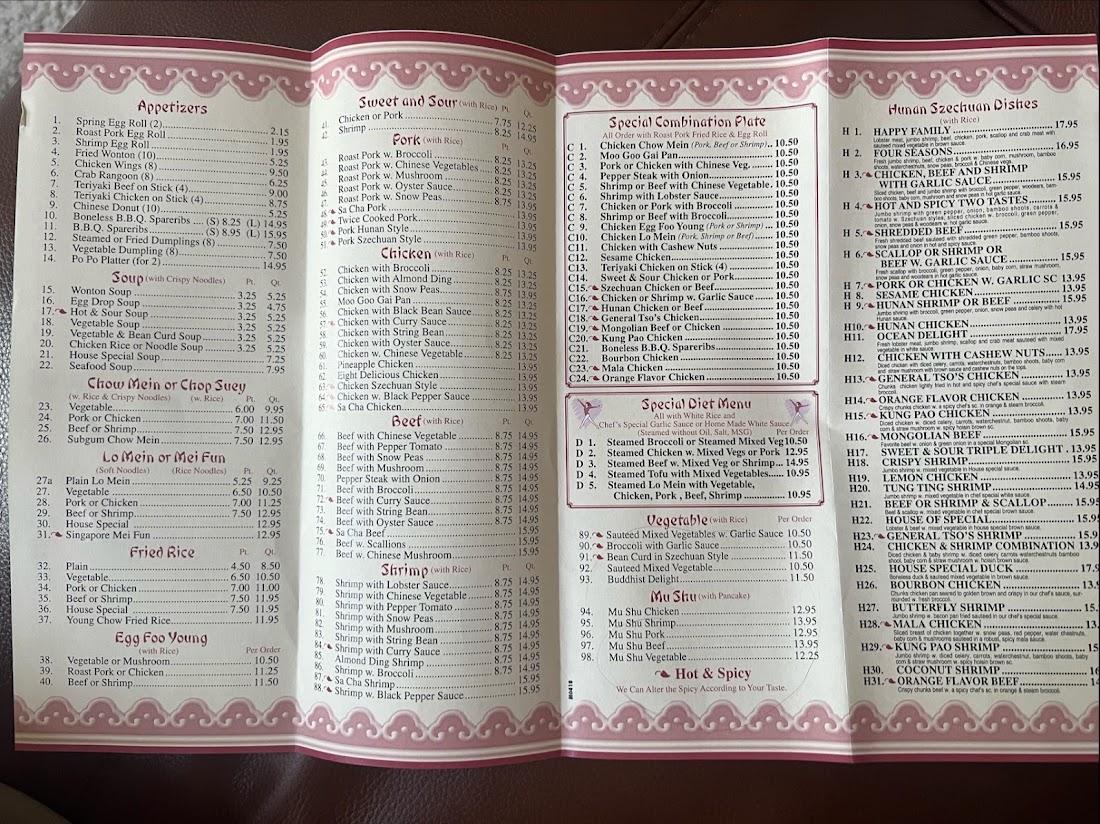 Appetizers
1. Spring Egg Roll (2) 2.15
2. Roast Pork Egg Roll 1.95
3. Shrimp Egg Roll 1.95
4. Fried Wonton (10) 5.25
5. Chicken Wings (8) 9.50
6. Crab Rangoon (8) 6.25
7. Teriyaki Beef on Stick (4) 9.00
8. Teriyaki Chicken on Stick (4) 8.75
9. Chinese Donut (10) 5.25
10. Boneless B.B.Q. Spareribs (S) 8.25 (L) 14.95
11. B.B.Q. Spareribs (S) 8.95 (L) 15.95
12. Steamed or Fried Dumplings (8) 7.50
13. Vegetable Dumpling (8) 7.50
14. Po Po Platter (for 2) 14.95
Soup (with Crispy Noodles) Pt. Qt.
15. Wonton Soup 3.25 5.25
16. Egg Drop Soup 3.25 4.75
17. Hot & Sour Soup 3.25 5.25
18. Vegetable Soup 3.25 5.25
19. Vegetable & Bean Curd Soup 3.25 5.25
20. Chicken Rice or Noodle Soup 3.25 5.25
21. House Special Soup 7.25
22. Seafood Soup 7.95
Chow Mein or Chop Suey
(w. Rice & Crispy Noodles) (w. Rice) Pt. Qt.
23. Vegetable 6.00 9.95
24. Pork or Chicken 7.00 11.50
25. Beef or Shrimp 7.50 12.95
26. Subgum Chow Mein 7.50 12.95
Lo Mein or Mei Fun
(Soft Noodles) (Rice Noodles) Pt. Qt.
27a Plain Lo Mein 5.25 9.25
27. Vegetable 6.50 10.50
28. Pork or Chicken 7.00 11.25
29. Beef or Shrimp 7.50 12.95
30. House Special 12.95
31. Singapore Mei Fun 12.95
Fried Rice Pt. Qt.
32. Plain 4.50 8.50
33. Vegetable 6.50 10.50
34. Pork or Chicken 7.00 11.00
35. Beef or Shrimp 7.50 11.95
36. House Special 7.50 11.95
37. Young Chow Fried Rice 11.95
Egg Foo Young
(with Rice) Per Order
38. Vegetable or Mushroom 10.50
39. Roast Pork or Chicken 11.25
40. Beef or Shrimp 11.50
Sweet and Sour (with Rice) Pt. Qt.
41. Chicken or Pork 7.75 12.25
42. Shrimp 8.25 14.95
Pork (with Rice) Pt. Qt.
43. Roast Pork w. Broccoli 8.25 13.25
44. Roast Pork w. Chinese Vegetables 8.25 13.95
45. Roast Pork w. Mushroom 8.25 13.95
46. Roast Pork w. Oyster Sauce 8.25 13.95
47. Roast Pork w. Snow Peas 8.25 13.95
48. Sa Cha Pork 13.95
49. Twice Cooked Pork 13.95
50. Pork Hunan Style 13.95
51. Pork Szechuan Style 13.95
Chicken (with Rice) Pt. Qt.
52. Chicken with Broccoli 8.25 13.25
53. Chicken with Almond Ding 8.25 13.95
54. Chicken with Snow Peas 8.75 13.95
55. Moo Goo Gai Pan 8.25 13.95
56. Chicken with Black Bean Sauce 8.25 13.95
57. Chicken with Curry Sauce 8.25 13.95
58. Chicken with String Bean 8.25 13.95
59. Chicken with Oyster Sauce 8.25 13.95
60. Chicken w. Chinese Vegetable 8.25 13.95
61. Pineapple Chicken 13.95
62. Eight Delicious Chicken 13.95
63. Chicken Szechuan Style 13.95
64. Chicken w. Black Pepper Sauce 13.95
65. Sa Cha Chicken 13.95
Beef (with Rice) Pt. Qt.
66. Beef with Chinese Vegetable 8.75 14.95
67. Beef with Pepper Tomato 8.75 14.95
68. Beef with Snow Peas 8.75 14.95
69. Beef with Mushroom 8.75 14.95
70. Pepper Steak with Onion 8.75 14.95
71. Beef with Broccoli 8.75 14.95
72. Beef with Curry Sauce 8.75 14.95
73. Beef with String Bean 8.75 14.95
74. Beef with Oyster Sauce 8.75 14.95
75. Sa Cha Beef 15.95
76. Beef w. Scallions 15.95
77. Beef w. Chinese Mushroom 15.95
Shrimp (with Rice) Pt. Qt.
78. Shrimp with Lobster Sauce 8.75 14.95
79. Shrimp with Chinese Vegetable 8.75 14.95
80. Shrimp with Pepper Tomato 8.75 14.95
81. Shrimp with Snow Peas 8.75 14.95
82. Shrimp with Mushroom 8.75 14.95
83. Shrimp with String Bean 8.75 14.95
84. Shrimp with Curry Sauce 8.75 14.95
85. Almond Ding Shrimp 8.75 14.95
86. Shrimp w. Broccoli 8.75 14.95
87. Sa Cha Shrimp 15.95
88. Shrimp w. Black Pepper Sauce 15.95
Special Combination Plate
All Order with Roast Pork Fried Rice & Egg Roll
C 1. Chicken Chow Mein (Pork, Beef or Shrimp) 10.50
C 2. Moo Goo Gai Pan 10.50
C 3. Pork or Chicken with Chinese Veg. 10.50
C 4. Pepper Steak with Onion 10.50
C 5. Shrimp or Beef with Chinese Vegetable 10.50
C 6. Shrimp with Lobster Sauce 10.50
C 7. Chicken or Pork with Broccoli 10.50
C 8. Shrimp or Beef with Broccoli 10.50
C 9. Chicken Egg Foo Young (Pork or Shrimp) 10.50
C10. Chicken Lo Mein (Pork, Shrimp or Beef) 10.50
C11. Chicken with Cashew Nuts 10.50
C12. Sesame Chicken 10.50
C13. Teriyaki Chicken on Stick (4) 10.50
C14. Sweet & Sour Chicken or Pork 10.50
C15. Szechuan Chicken or Beef 10.50
C16. Chicken or Shrimp w. Garlic Sauce 10.50
C17. Hunan Chicken or Beef 10.50
C18. General Tso's Chicken 10.50
C19. Mongolian Beef or Chicken 10.50
C20. Kung Pao Chicken 10.50
C21. Boneless B.B.Q. Spareribs 10.50
C22. Bourbon Chicken 10.50
C23. Mala Chicken 10.50
C24. Orange Flavor Chicken 10.50
Special Diet Menu
All with White Rice and
Chef's Special Garlic Sauce or Home Made White Sauce
(Steamed without Oil, Salt, MSG) Per Order
D 1. Steamed Broccoli or Steamed Mixed Veg 10.50
D 2. Steamed Chicken w. Mixed Vegs or Pork 12.95
D 3. Steamed Beef w. Mixed Veg or Shrimp 14.95
D 4. Steamed Tofu with Mixed Vegetables 10.95
D 5. Steamed Lo Mein with Vegetable,
Chicken, Pork, Beef, Shrimp 10.95
Vegetable (with Rice) Per Order
89. Sauteed Mixed Vegetables w. Garlic Sauce 10.50
90. Broccoli with Garlic Sauce 10.50
91. Bean Curd in Szechuan Style 11.50
92. Sauteed Mixed Vegetable 10.50
93. Buddhist Delight 11.50
Mu Shu (with Pancake)
94. Mu Shu Chicken 12.95
95. Mu Shu Shrimp 13.95
96. Mu Shu Pork 12.95
97. Mu Shu Beef 13.95
98. Mu Shu Vegetable 12.25
Hot & Spicy
We Can Alter the Spicy According to Your Taste.
M0418
Hunan Szechuan Dishes
(with Rice)
H 1. HAPPY FAMILY 17.95
Lobster meat, jumbo shrimp, beef, chicken, pork, scallop and crab meat with
sauteed mixed vegetable in brown sauce.
H 2. FOUR SEASONS 16.95
Fresh jumbo shrimp, beef, chicken & pork w. baby corn, mushroom, bamboo
shoots, waterchestnuts, snow peas, broccoli & Chinese vegs.
H 3. CHICKEN, BEEF AND SHRIMP
WITH GARLIC SAUCE 15.95
Sliced chicken, beef and jumbo shrimp with broccoli, green pepper, woodears, bam-
boo shoots, baby corn, mushrooms and snow peas in garlic sauce.
H 4. HOT AND SPICY TWO TASTES 15.95
Jumbo shrimp with green pepper, onion, bamboo shoots, carrots &
tomato w. Szechuan styles, sliced chicken w. broccoli, green pepper,
onion, snow peas & woodears w. hot garlic sauce.
H 5. SHREDDED BEEF 15.95
Fresh shredded beef sauteed with shredded green pepper, bamboo shoots,
snow peas and onion in hot and spicy sauce.
H 6. SCALLOP OR SHRIMP OR
BEEF W. GARLIC SAUCE 15.95
Fresh scallop with broccoli, green pepper, onion, baby corn, straw mushroom,
snow peas and woodears in hot garlic sauce.
H 7. PORK OR CHICKEN W. GARLIC SC 13.95
H 8. SESAME CHICKEN 13.95
H 9. HUNAN SHRIMP OR BEEF 15.95
Jumbo shrimp with broccoli, green pepper, onion, snow peas and celery with hot
Hunan sauce.
H10. HUNAN CHICKEN 13.95
H11. OCEAN DELIGHT 17.95
Fresh lobster meat, jumbo shrimp, scallop and crab meat sauteed with mixed
vegetable in white sauce.
H12. CHICKEN WITH CASHEW NUTS 13.95
Diced chicken with diced celery, carrots, waterchestnuts, bamboo shoots, baby corn
and straw mushroom with brown sauce and cashew nuts on the tops.
H13. GENERAL TSO'S CHICKEN 13.95
Chunks chicken lightly fried in hot and spicy chef's special sauce with steam
broccoli.
H14. ORANGE FLAVOR CHICKEN 13.95
Crispy chunks chicken w. a spicy chef's sc. in orange & steam broccoli.
H15. KUNG PAO CHICKEN 13.95
Diced chicken w. diced celery, carrots, waterchestnut, bamboo shoots, baby
corn & straw mushroom w. spicy hoisin brown sc.
H16. MONGOLIAN BEEF 15.95
Favorite beef w. onion & green onion in a special Mongolian sc.
H17. SWEET & SOUR TRIPLE DELIGHT 13.95
H18. CRISPY SHRIMP 15.95
Jumbo shrimp w. mixed vegetable in House special sauce.
H19. LEMON CHICKEN 13.95
H20. TUNG TING SHRIMP 14.95
Jumbo shrimp w. mixed vegetable in chef special white sauce.
H21. BEEF OR SHRIMP & SCALLOP 15.95
Beef & scallop w. mixed vegetable in chef special brown sauce.
H22. HOUSE OF SPECIAL 15.9
Lobster & beef w. mixed vegetable in house special brown sauce.
H23. GENERAL TSO'S SHRIMP 15.9
H24. CHICKEN & SHRIMP COMBINATION 13.9
Diced chicken & baby shrimp w. diced celery, carrots waterchestnut, bamboo
shoot, baby corn & straw mushroom w. chef brown sauce.
H25. HOUSE SPECIAL DUCK 17.9
Boneless duck & sauteed mixed vegetable in brown sauce.
H26. BOURBON CHICKEN 13.
Chunks chicken pan seared to golden brown and crispy in our chef's sauce, sur-
rounded w. fresh broccoli.
H27. BUTTERFLY SHRIMP 15.
Jumbo shrimp w. bacon pan fried sauteed in our chef's special sauce.
H28. MALA CHICKEN 13.
Sliced breast of chicken together w. snow peas, red pepper, water chestnuts,
baby corn & mushrooms sauteed in a robust, spicy mala sauce.
H29. KUNG PAO SHRIMP 15.
Jumbo shrimp w. diced celery, carrots, waterchestnut, bamboo shoots, baby
corn & straw mushroom w. spicy hoisin brown sc.
H30. COCONUT SHRIMP
H31. ORANGE FLAVOR BEEF 14
Crispy chunks beef w. a spicy chef's sc. in orange & steam broccoli.